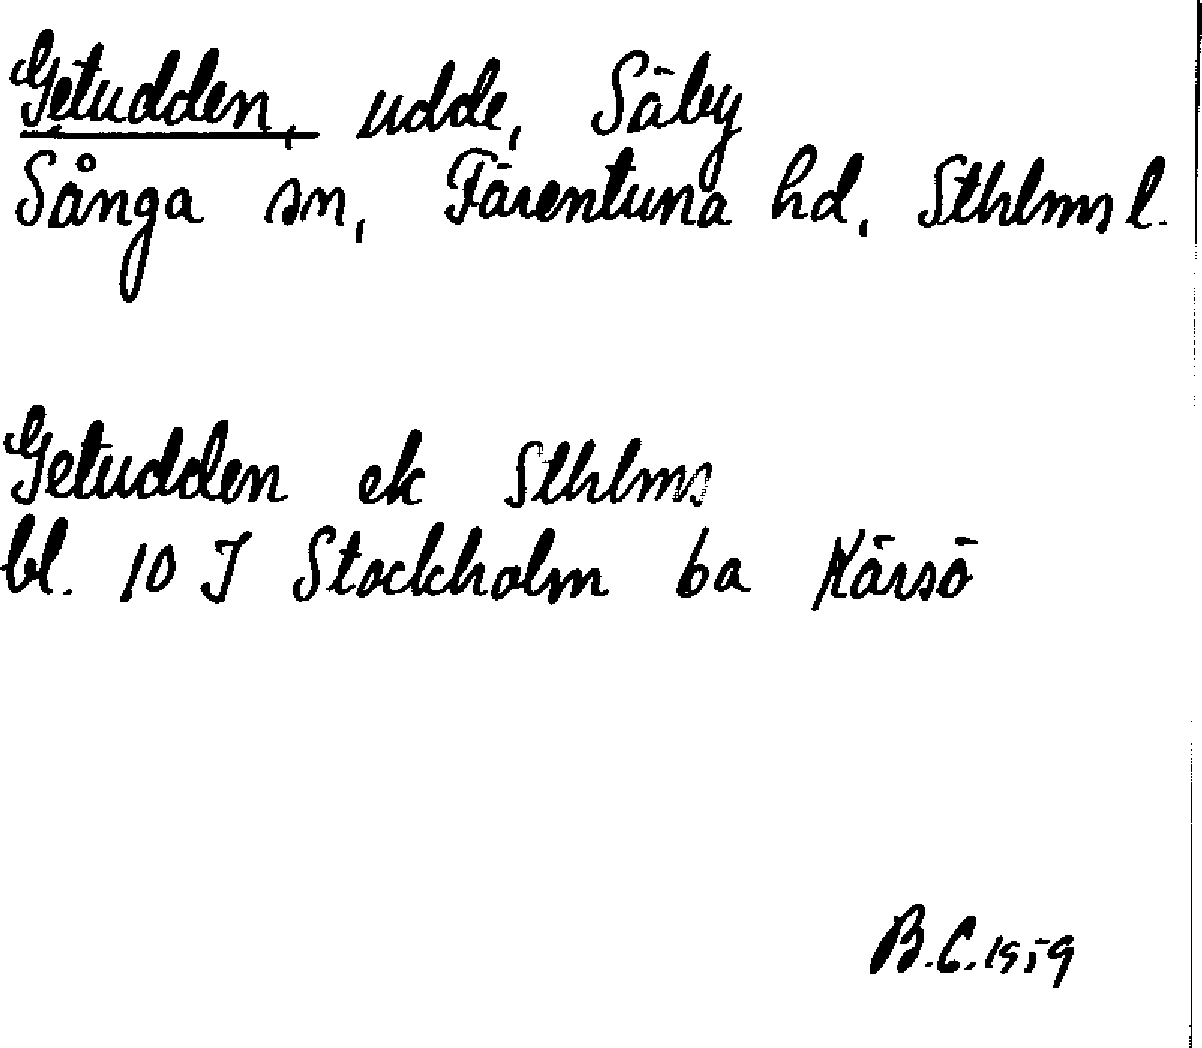 Getudden, udde, Säby
Sånga sn, Färentuna hd, Sthlms l.
Getudden ek Sthlms
bl. 10 I Stockholm 6a Kärsö
B.C. 1959